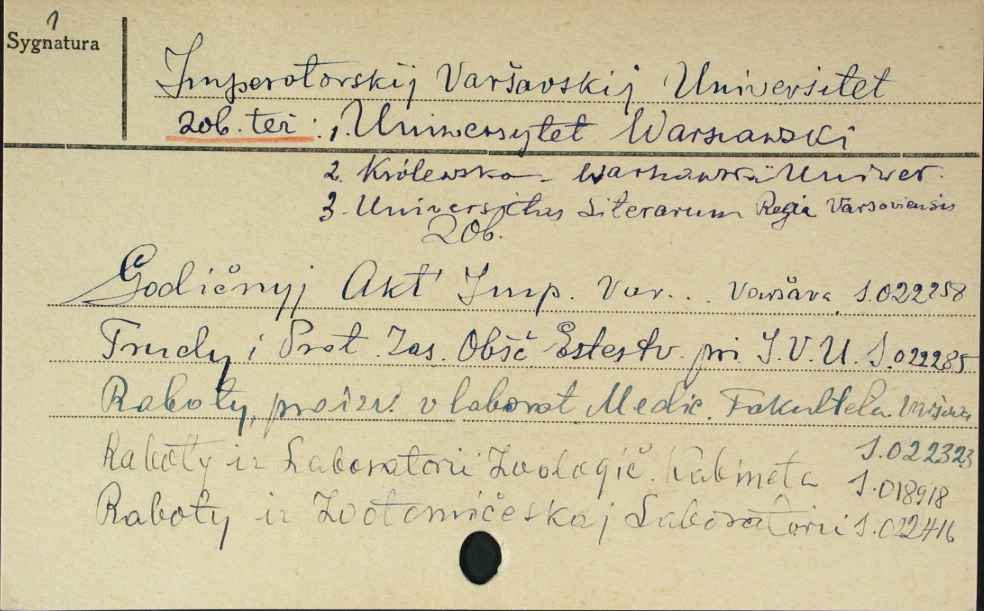 1
Sygnatura
Imperatorskij Varšavskij Universitet
zob. też: 1. Uniwersytet Warszawski
2. Królewsko - Warszawski Uniwer.
3. Universitas Literarum Regia Varsoviensis
Zob.
Godičnyj Akt Imp. Var... Varšava, S.022258
Trudy i Prot. Zas. Obšč Estestv. pri I.V.U. S.022285
Raboty, proizv. v laborat Medic. Fakulteta
S.022323
Raboty iz Laboratorii Zoologič. Kabineta S.018918
Raboty iz Zootomičeskaj Laboratorii S.022416